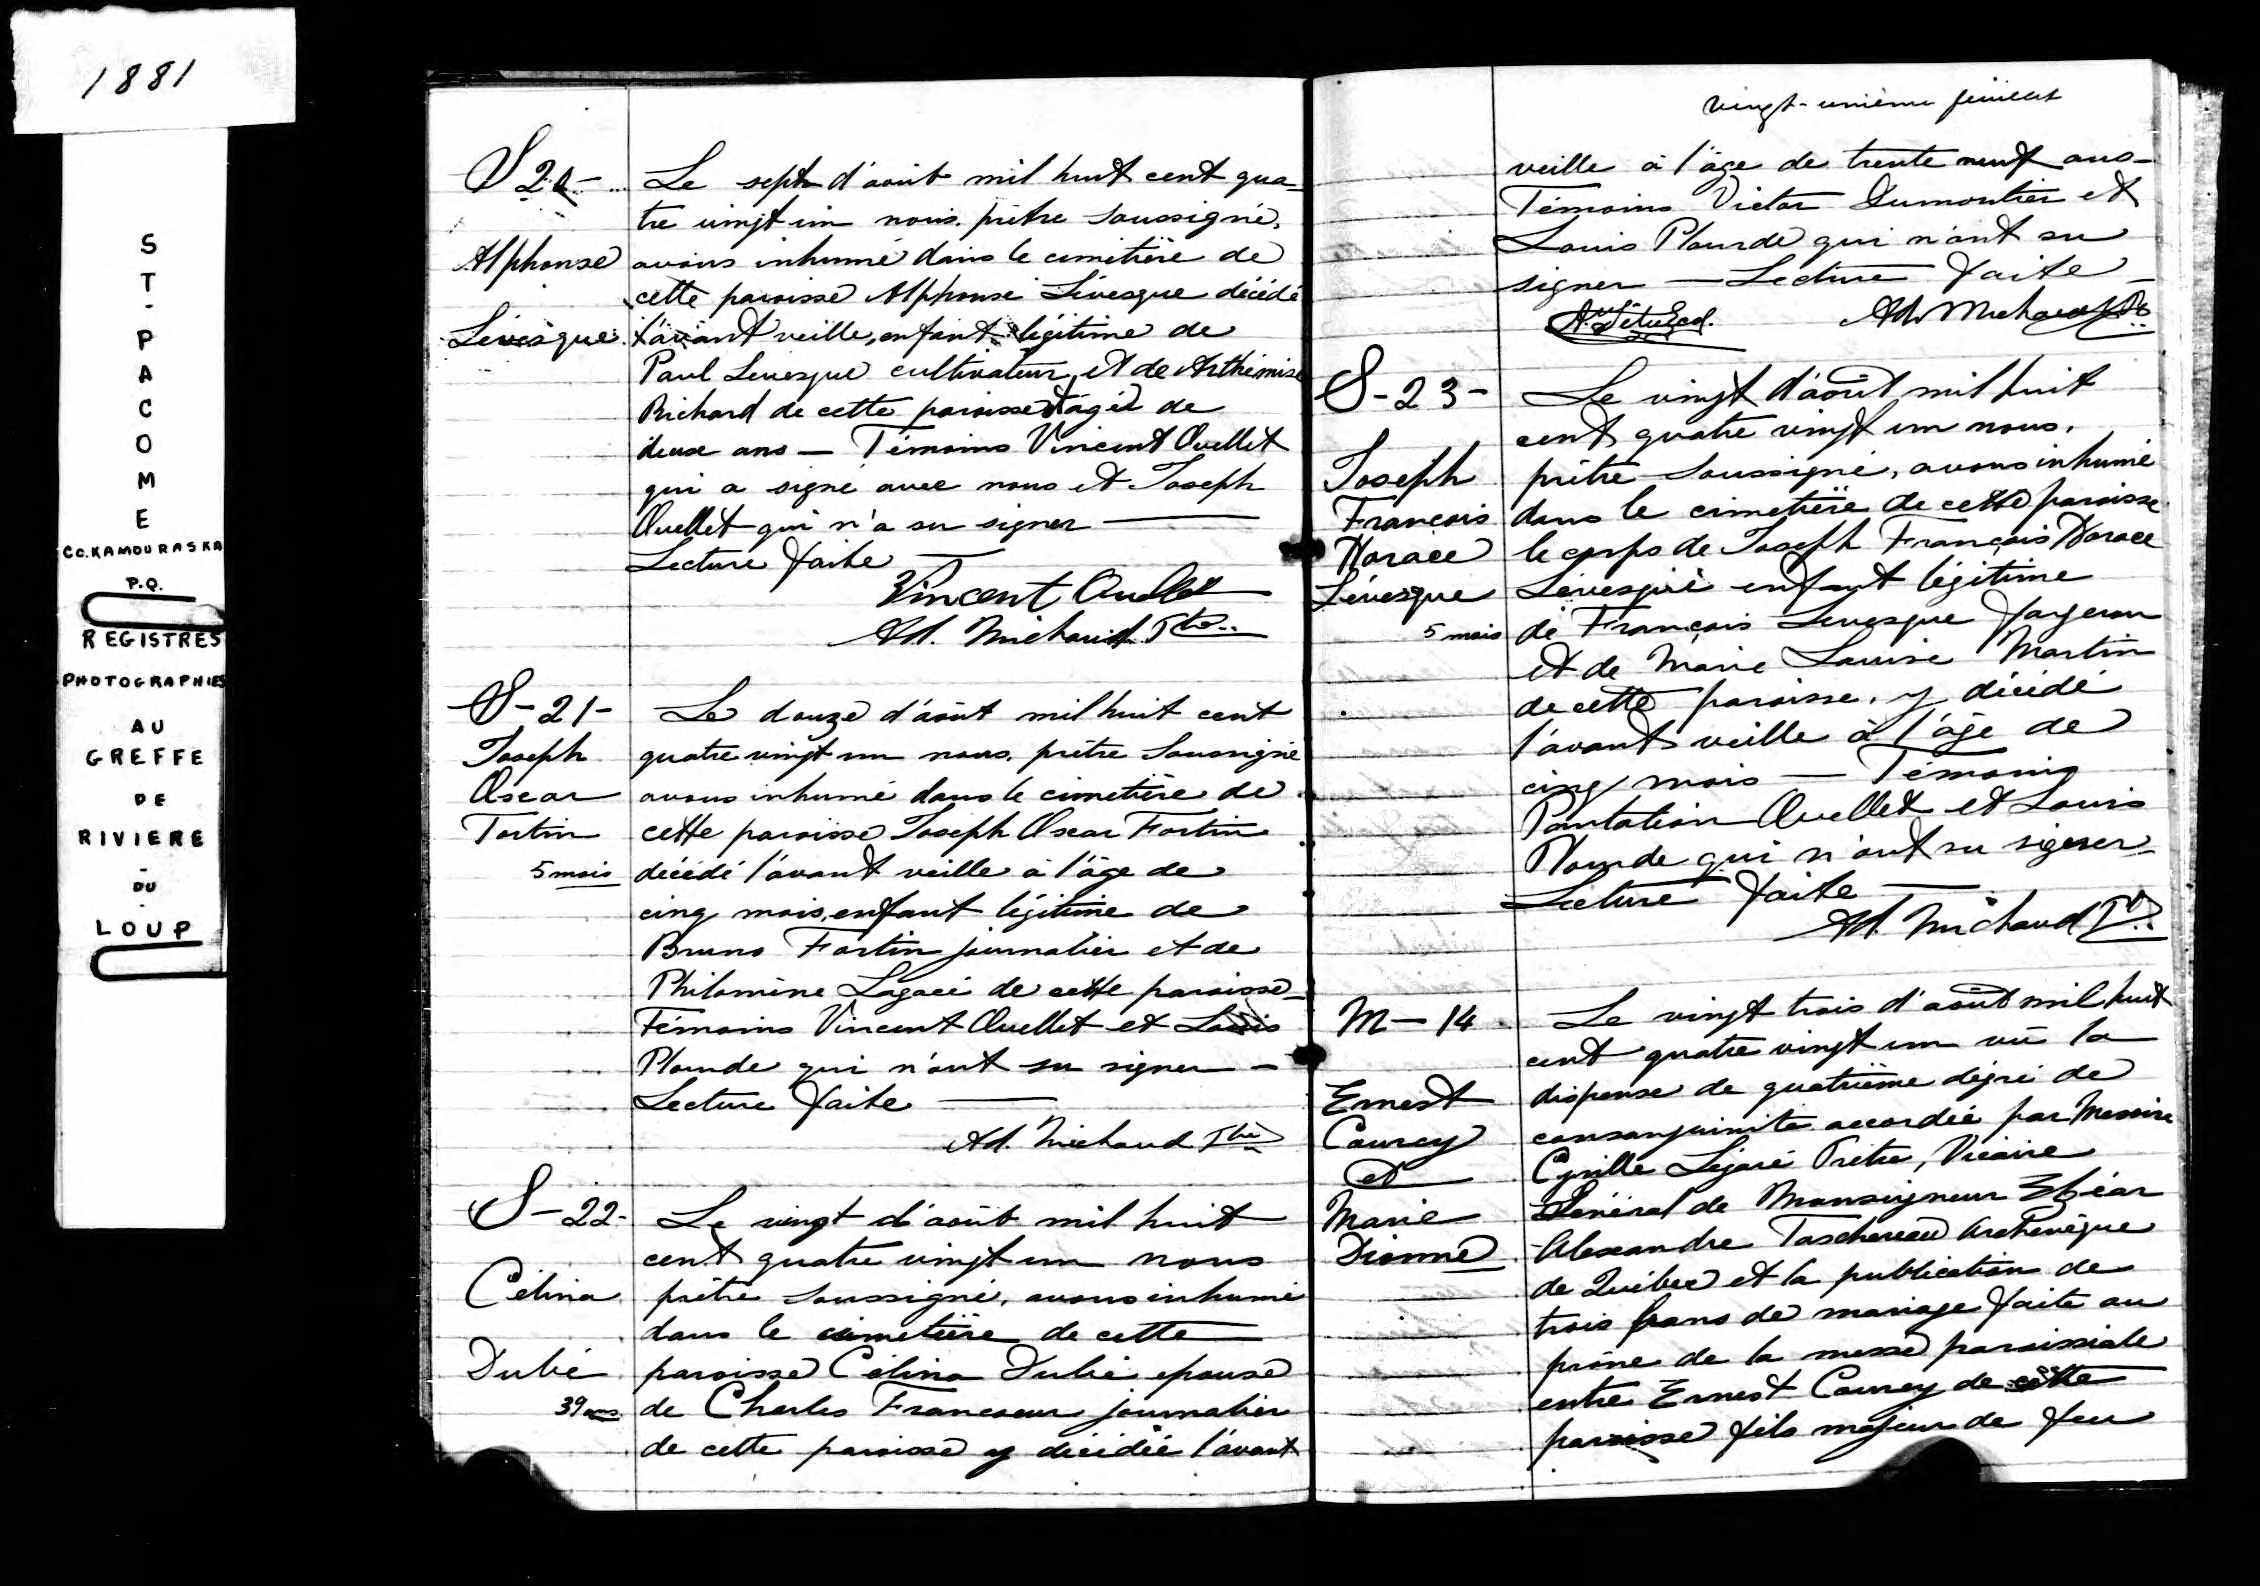 1881
ST-PACOME
CO. KAMOURASKA
P.Q.
REGISTRES
PHOTOGRAPHIES
AU
GREFFE
DE
RIVIERE
-
DU
-
LOUP
S 20-
Alphonse
Lévesque
Le sept d'août mil huit cent qua-
tre vingt un nous, prêtre soussigné,
avons inhumé dans le cimetière de
cette paroisse Alphonse Lévesque décédé
l'avant veille, enfant légitime de
Paul Levesque cultivateur, et de Arthémise
Richard de cette paroisse et agé de
deux ans — Témoins Vincent Ouellet
qui a signé avec nous et Joseph
Ouellet qui n'a su signer —
Lecture faite —
Vincent Ouellet
Ad. Michaud Ptre..
S-21-
Joseph
Oscar
Fortin
5 mois
Le douze d'août mil huit cent
quatre vingt un nous, prêtre soussigné
avons inhumé dans le cimetière de
cette paroisse Joseph Oscar Fortin
décédé l'avant veille à l'âge de
cinq mois, enfant légitime de
Bruno Fortin journalier et de
Philomène Lagacé de cette paroisse —
Témoins Vincent Ouellet et Louis
Plourde qui n'ont su signer —
Lecture faite —
Ad. Michaud Ptre
S-22-
Célina
Dubé
39 ans
Le vingt d'août mil huit
cent quatre vingt un nous
prêtre soussigné, avons inhumé
dans le cimetière de cette
paroisse Célina Dubé epouse
de Charles Francoeur journalier
de cette paroisse y décédée l'avant
vingt-unième feuillet
veille à l'âge de trente neuf ans —
Témoins Victor Dumontier et
Louis Plourde qui n'ont su
signer — Lecture faite —
Ad. Michaud Ptre
S-23-
Joseph
François
Horace
Lévesque
5 mois
Le vingt d'août mil huit
cent quatre vingt un nous,
prêtre soussigné, avons inhumé
dans le cimetière de cette paroisse
le corps de Joseph François Horace
Lévesque enfant légitime
de François Levesque forgeron
et de Marie Louise Martin
de cette paroisse, y décédé
l'avant veille à l'âge de
cinq mois — Témoins
Pantation Ouellet et Louis
Plourde qui n'ont su signer —
Lecture faite —
Ad. Michaud Ptre
M-14
Ernest
Courcy
et
Marie
Dionne
Le vingt trois d'août mil huit
cent quatre vingt un vû la
dispense de quatrième dégré de
consanguinité accordée par Messire
Cyrille Légaré Prêtre, Vicaire
Général de Monseigneur Elzéar
Alexandre Taschereau Archevêque
de Québec et la publication de
trois bans de mariage faite au
prône de la messe paroissiale
entre Ernest Courcy de cette
paroisse fils majeur de feu